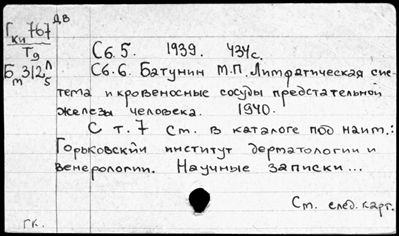 Гки 767 дв
Тд
Бт 312 л/5
Сб. 5. 1939. 434 с.
Сб. 6. Батунин М.П. Лимфатическая сис-
тема и кровеносные сосуды предстательной
железы человека. 1940.
С т. 7 см. в каталоге под наим.:
Горьковский институт дерматологии и
венерологии. Научные записки...
См. след. карт.
гк.